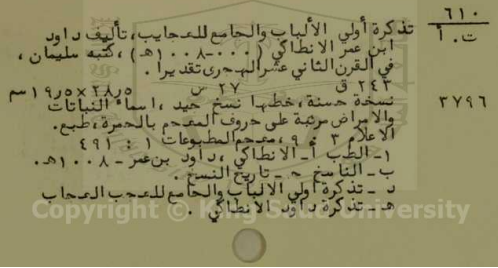 ٦١٠
ت . أ
تذكرة أولي الألباب والجامع للعجايب ، تأليف داود
ابن عمر الانطاكي ( ٠٠٠ - ١٠٠٨هـ ) ، كتبه سليمان ،
في القرن الثاني عشر الهجرى تقديرا .
٢٤٣ ق ٢٧ س ٢٨٫٥ × ١٩٫٥ سم
٣٧٩٦
نسخة حسنة ، خطها نسخ جيد ، اسماء النباتات
والامراض مرتبة على حروف المعجم بالحمرة ، طبع .
الاعلام ٣ : ٩ ، معجم المطبوعات ١ : ٤٩١
١ - الطب أ - الانطاكي ، داود بن عمر - ١٠٠٨هـ .
ب - الناسخ ج - تاريخ النسخ .
د - تذكرة أولي الالباب والجامع للعجب العجاب
هـ - تذكرة داود الأنطاكي .
Copyright © King Saud University